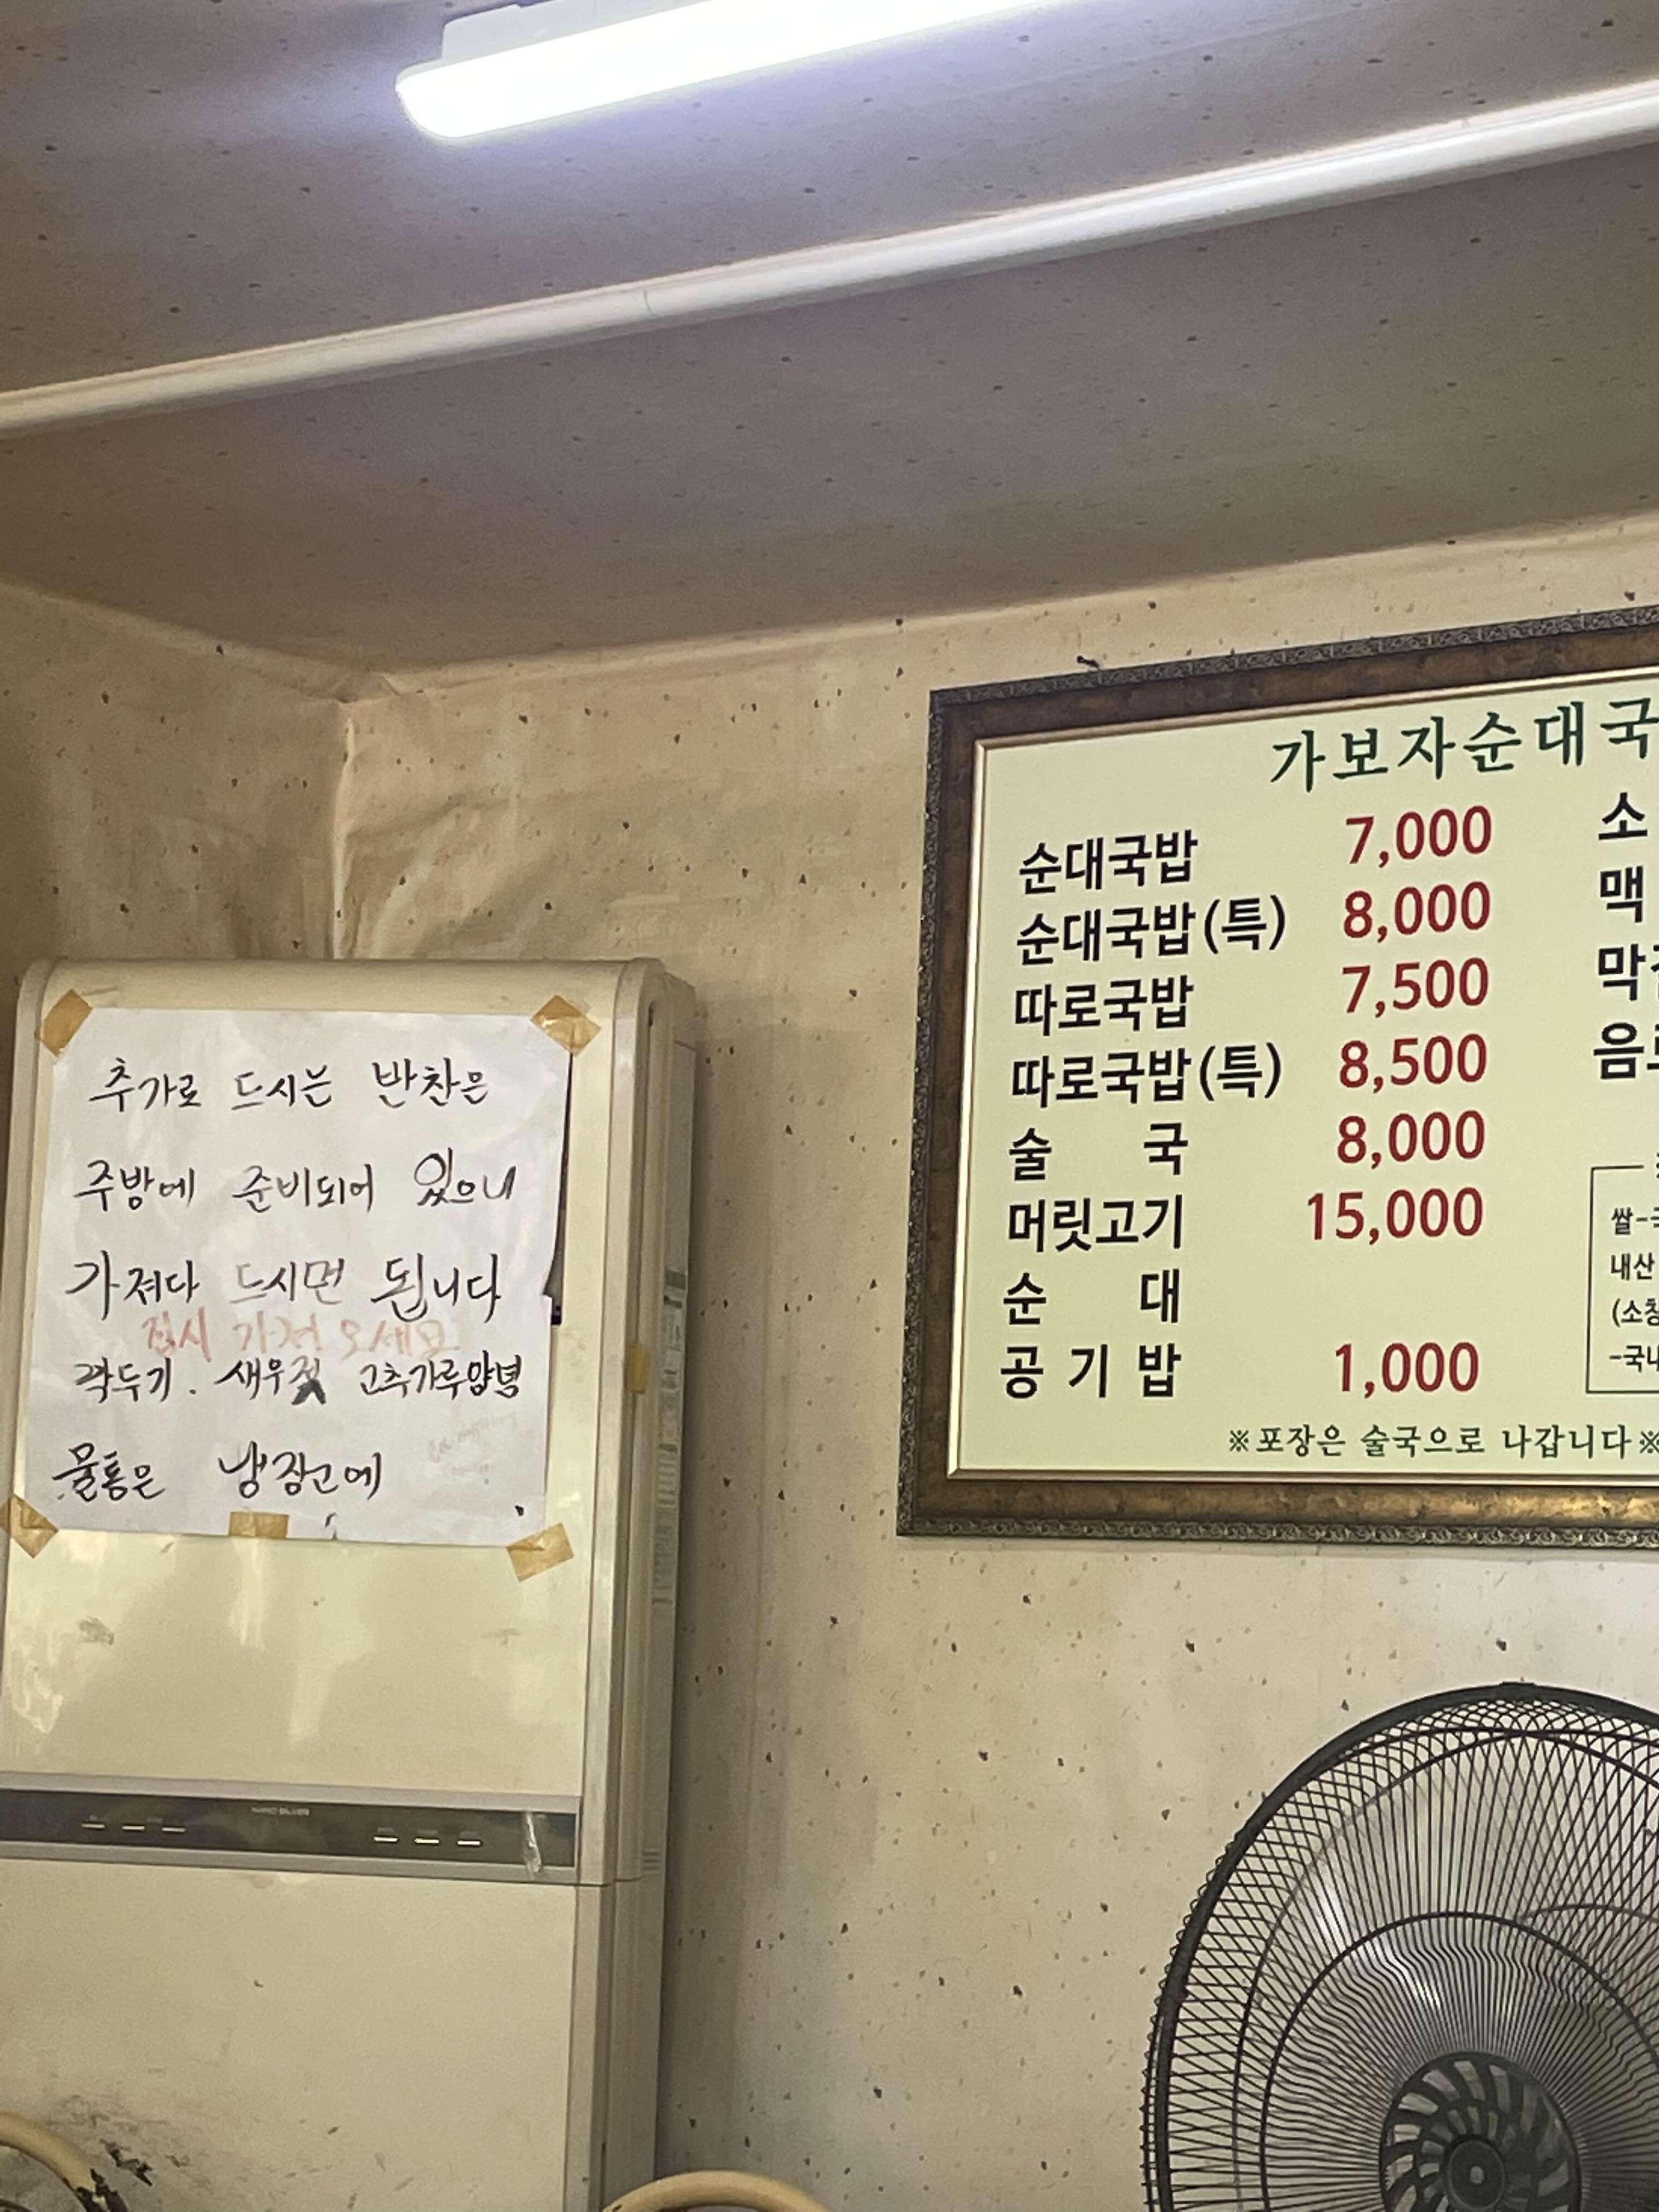 추가로 드시는 반찬은
주방에 준비되어 있으니
가져다 드시면 됩니다
접시 가져 오세요
깍두기. 새우젓 고추가루양념
물통은 냉장고에
가보자순대국
순대국밥 7,000
순대국밥(특) 8,000
따로국밥 7,500
따로국밥(특) 8,500
술국 8,000
머릿고기 15,000
순대
공기밥 1,000
※포장은 술국으로 나갑니다※
소
맥
막
음
쌀-
내산
(소창
-국내